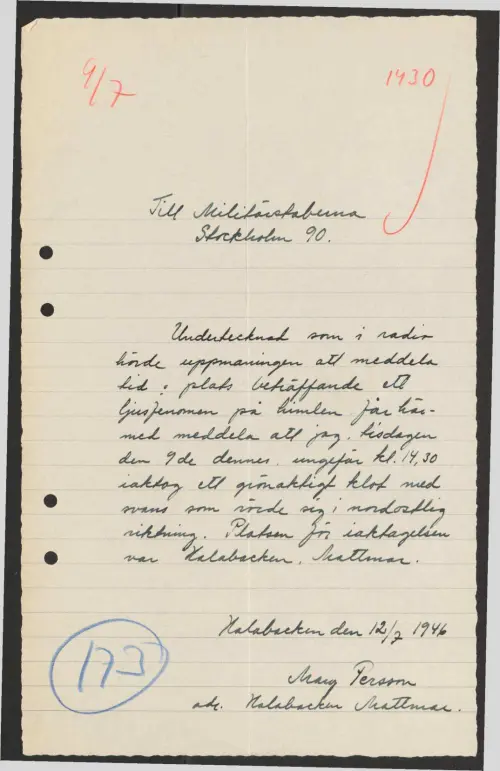 9/7
1430
Till Militärstaberna
Stockholm 90.
Undertecknad som i radio
hörde uppmaningen att meddela
tid o plats beträffande ett
ljusfenomen på himlen får här-
med meddela att jag, tisdagen
den 9de dennes, ungefär kl. 14,30
iaktog ett grönaktigt klot med
svans som rörde sig i nordostlig
riktning. Platsen för iaktagelsen
var Halabacken, Mattmar.
Halabacken den 12/7 1946
173
Persson
adr. Halabacken Mattmar.